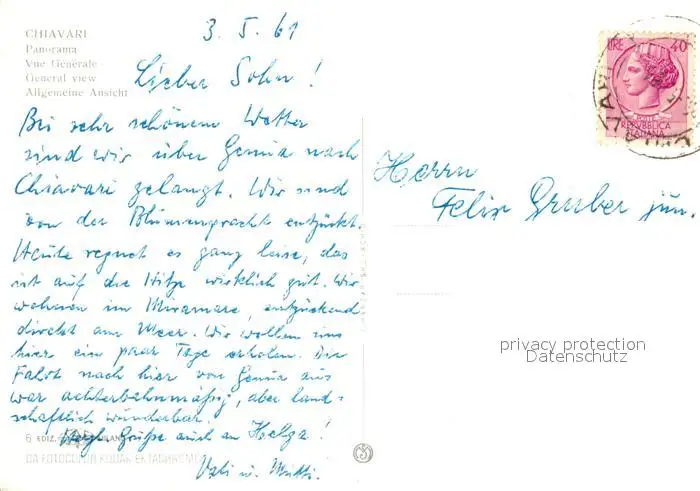 CHIAVARI
Panorama
Vue Générale
General view
Allgemeine Ansicht
3. 5. 61
Lieber Sohn!
Bei sehr schönem Wetter
sind wir über Genua nach
Chiavari gelangt. Wir sind
von der Blumenpracht entzückt.
Heute regnet es ganz leise, das
ist auf die Hitze wirklich gut. Wir
wohnen im Miramare, entzückend
direkt am Meer. Wir wollen uns
hier ein paar Tage erholen. Die
Fahrt nach hier von Genua aus
war achterbahnmäßig, aber land=
schaftlich wunderbar.
Herzl. Grüße auch an Helga!
Vati u. Mutti.
6 EDIZ.
DA FOTOCOLOR KODAK EKTACHROME
LIRE 40
POSTE
REPVBBLICA
ITALIANA
Herrn
Felix Gruber jün.
privacy protection
Datenschutz